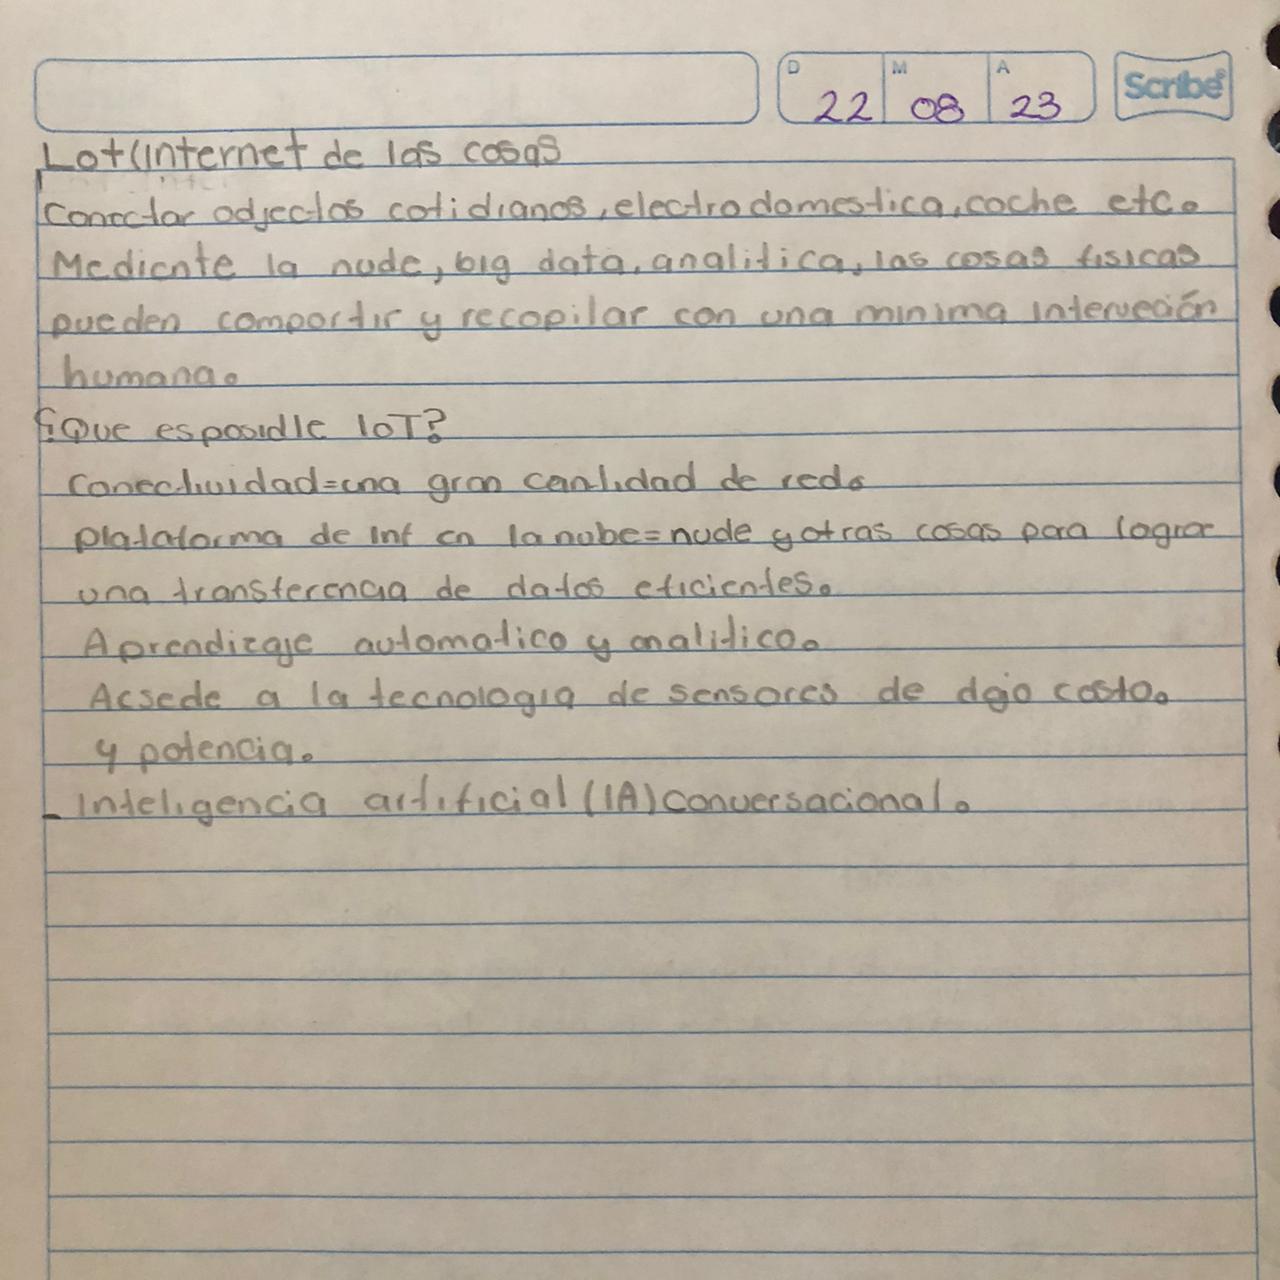 D 22 M 08 A 23 Scribe
Lot(internet de las cosas
Conectar odjectos cotidianos, electrodomestica, coche etc.
Mediente la nude, big data, analitica, las cosas fisicas
pueden compartir y recopilar con una minima interveción
humana.
¿Que es posidle IoT?
Conectividad=una gran cantidad de red.
plataforma de inf en la nube=nude y otras cosas para lograr
una transferencia de datos eficientes.
Aprendizaje automatico y analitico.
Acsede a la tecnologia de sensores de dajo costo.
y potencia.
- Inteligencia artificial (IA) conversacional.